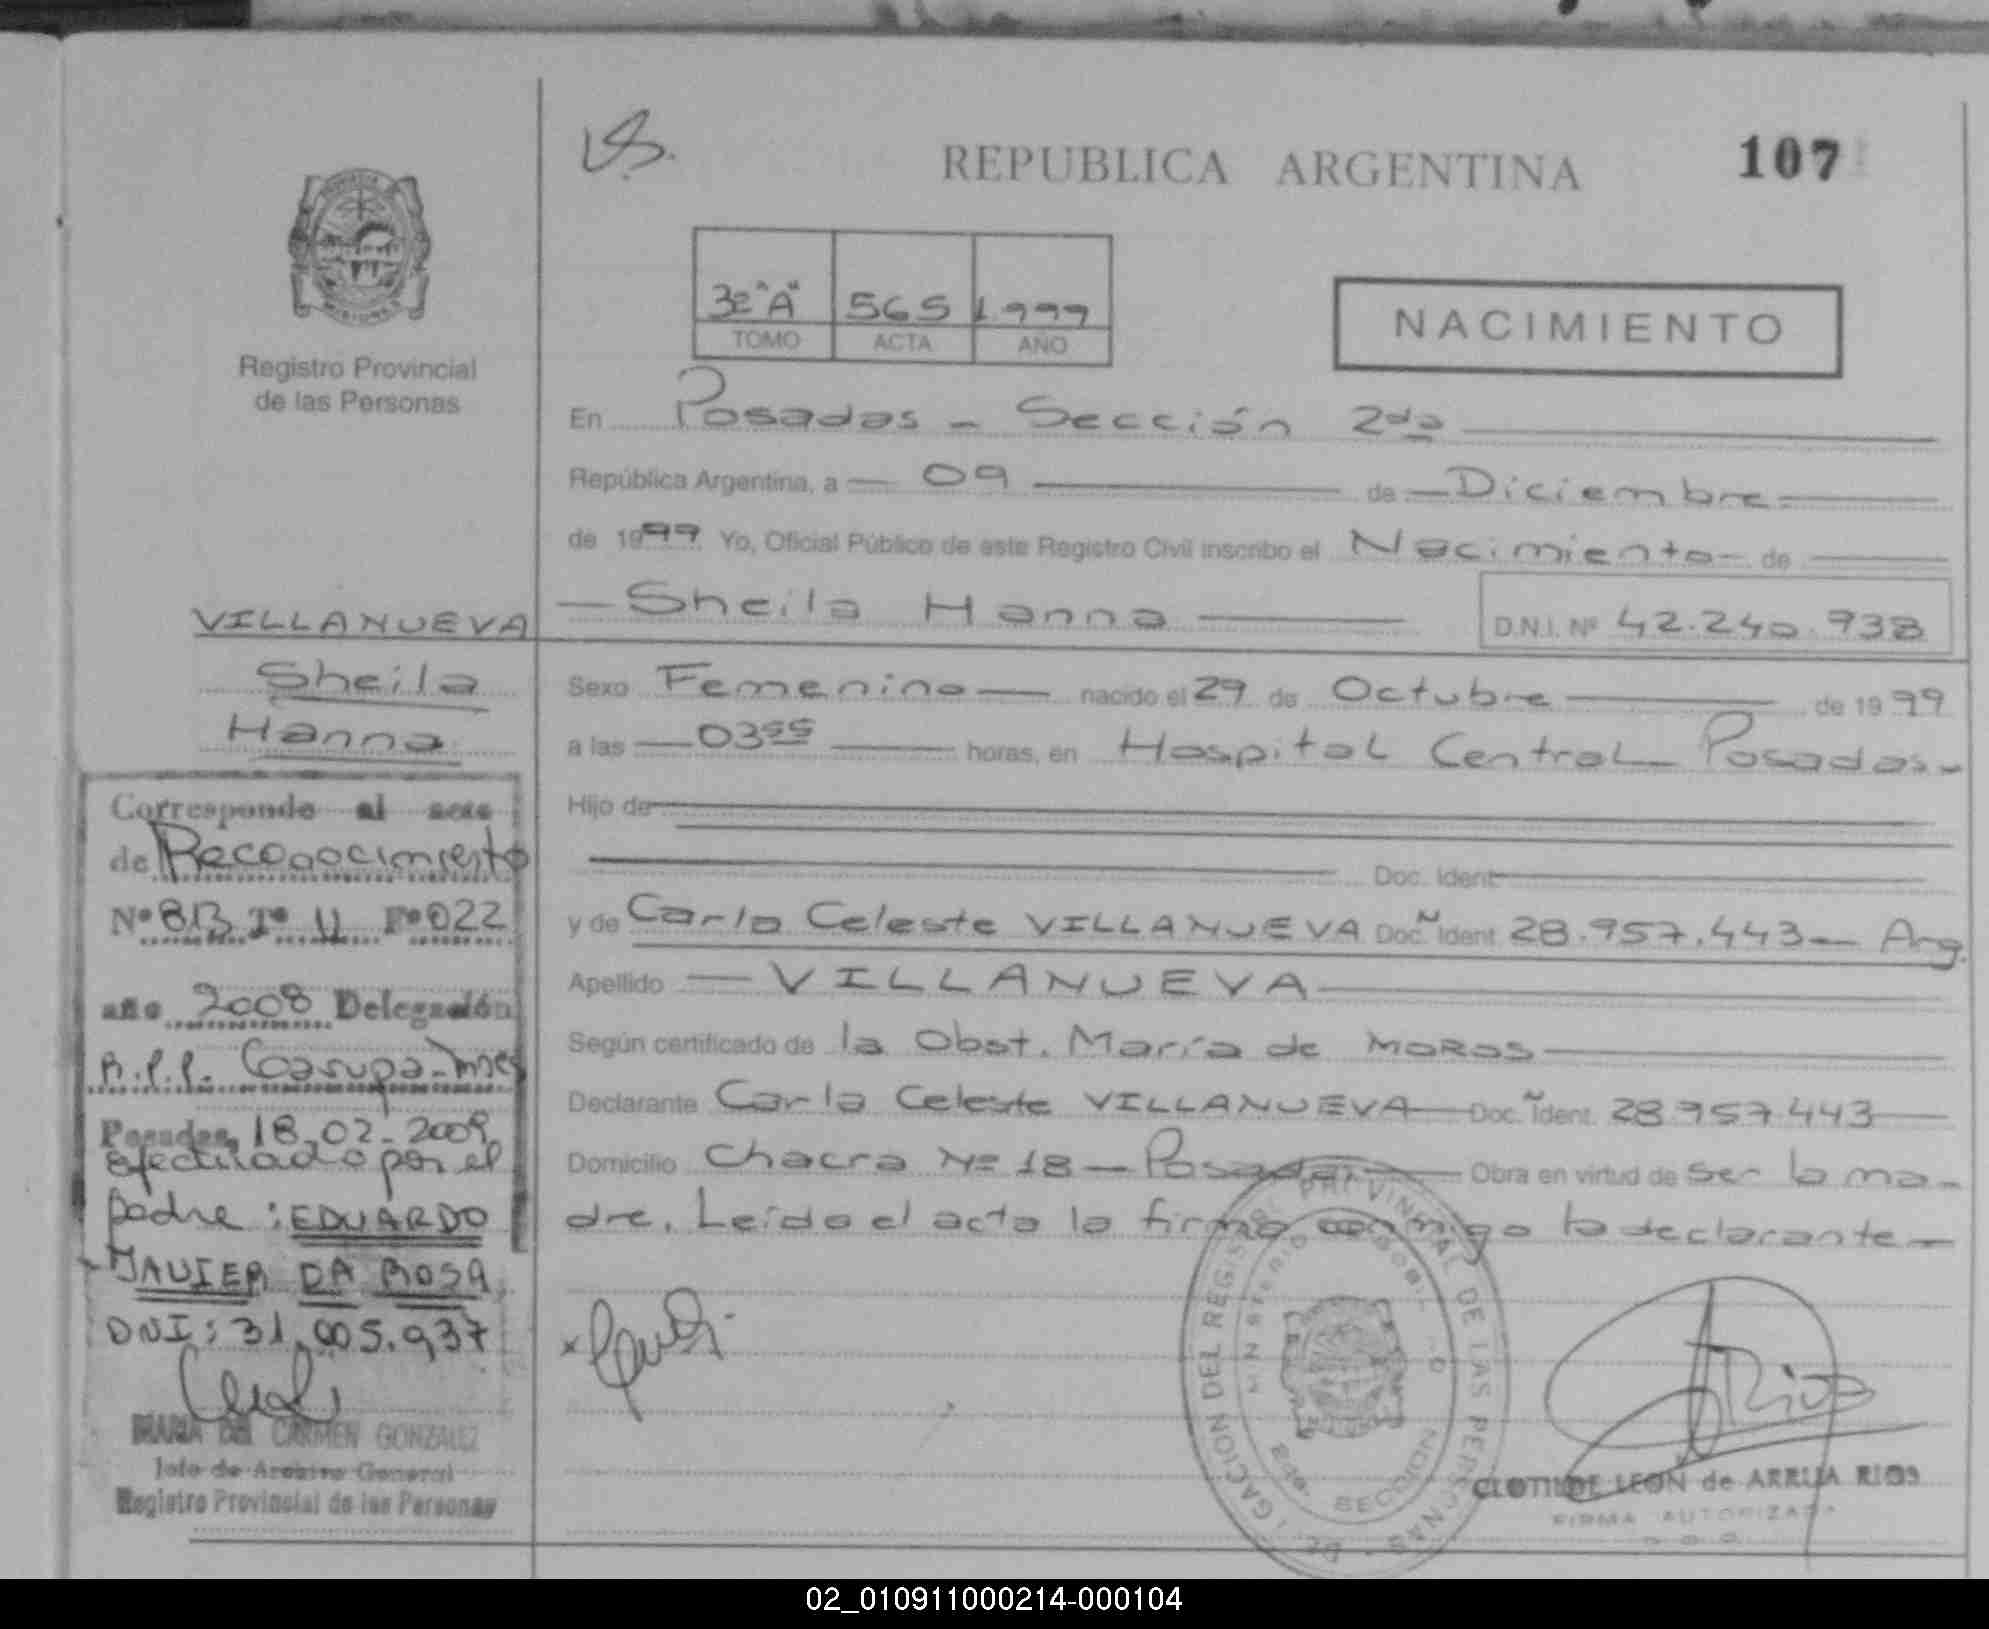 REPUBLICA ARGENTINA
107
PROVINCIA DE
MISIONES
Registro Provincial
de las Personas
3º "A" 565 1.999
TOMO ACTA AÑO
NACIMIENTO
En Posadas - Sección 2da
República Argentina, a 09 de Diciembre
de 1999 Yo, Oficial Público de este Registro Civil inscribo el Nacimiento de
Sheila Hanna D.N.I. Nº 42.240.938
Sexo Femenino nacido el 29 de Octubre de 1999
a las 0355 horas, en Hospital Central Posadas-
Hijo de
Doc. Ident.
y de Carla Celeste VILLANUEVA Doc. Ident. 28.957.443 Arg.
Apellido VILLANUEVA
Según certificado de la Obst. María de MOROS
Declarante Carla Celeste VILLANUEVA Doc. Ident. 28.957.443
Domicilio Chacra Nº 18 - Posadas Obra en virtud de ser la ma-
dre. Leída el acta la firma conmigo la declarante-
VILLANUEVA
Sheila
Hanna
Corresponde al acta
de Reconocimiento
Nº 813 Tº II Fº 022
año 2008 Delegación
Posadas, 18.02.2009
efectuado por el
padre : EDUARDO
JAVIER DA ROSA
DNI: 31.005.937
MARIA DEL CARMEN GONZALEZ
Jefe de Archivo General
Registro Provincial de las Personas
DELEGACION DEL REGISTRO PROVINCIAL DE LAS PERSONAS
MINISTERIO DE GOBIERNO
2da. SECCION
Rios
CLOTILDE LEON de ARRUA RIOS
FIRMA AUTORIZADA
02_010911000214-000104